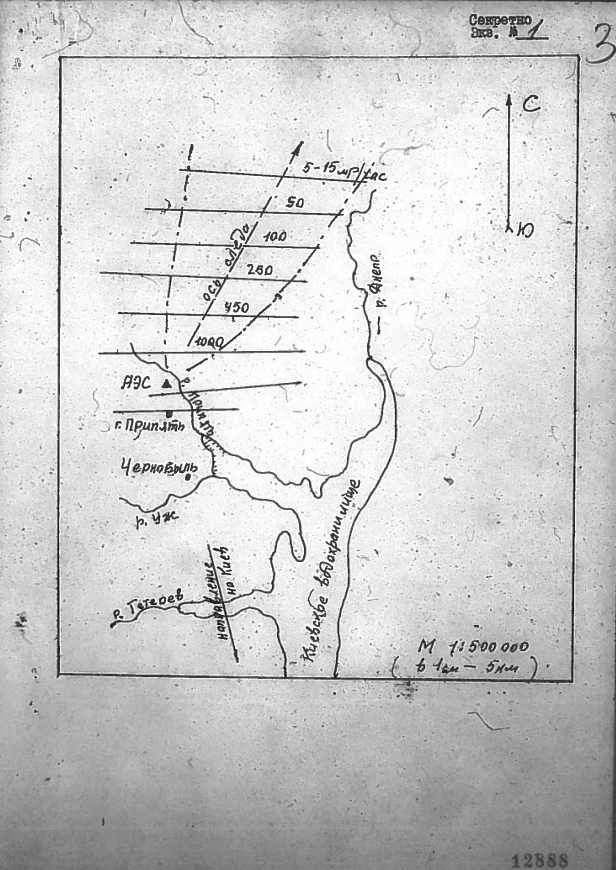 Секретно
Экз. № 1
3
С
Ю
5-15 мр/час
50
100
250
450
1000
ось следа
р. Днепр
АЭС
р. Припять
г. Припять
Чернобыль
р. Уж
р. Тетерев
направление
на Киев
Киевское водохранилище
М 1:500 000
(в 1см — 5км)
12888